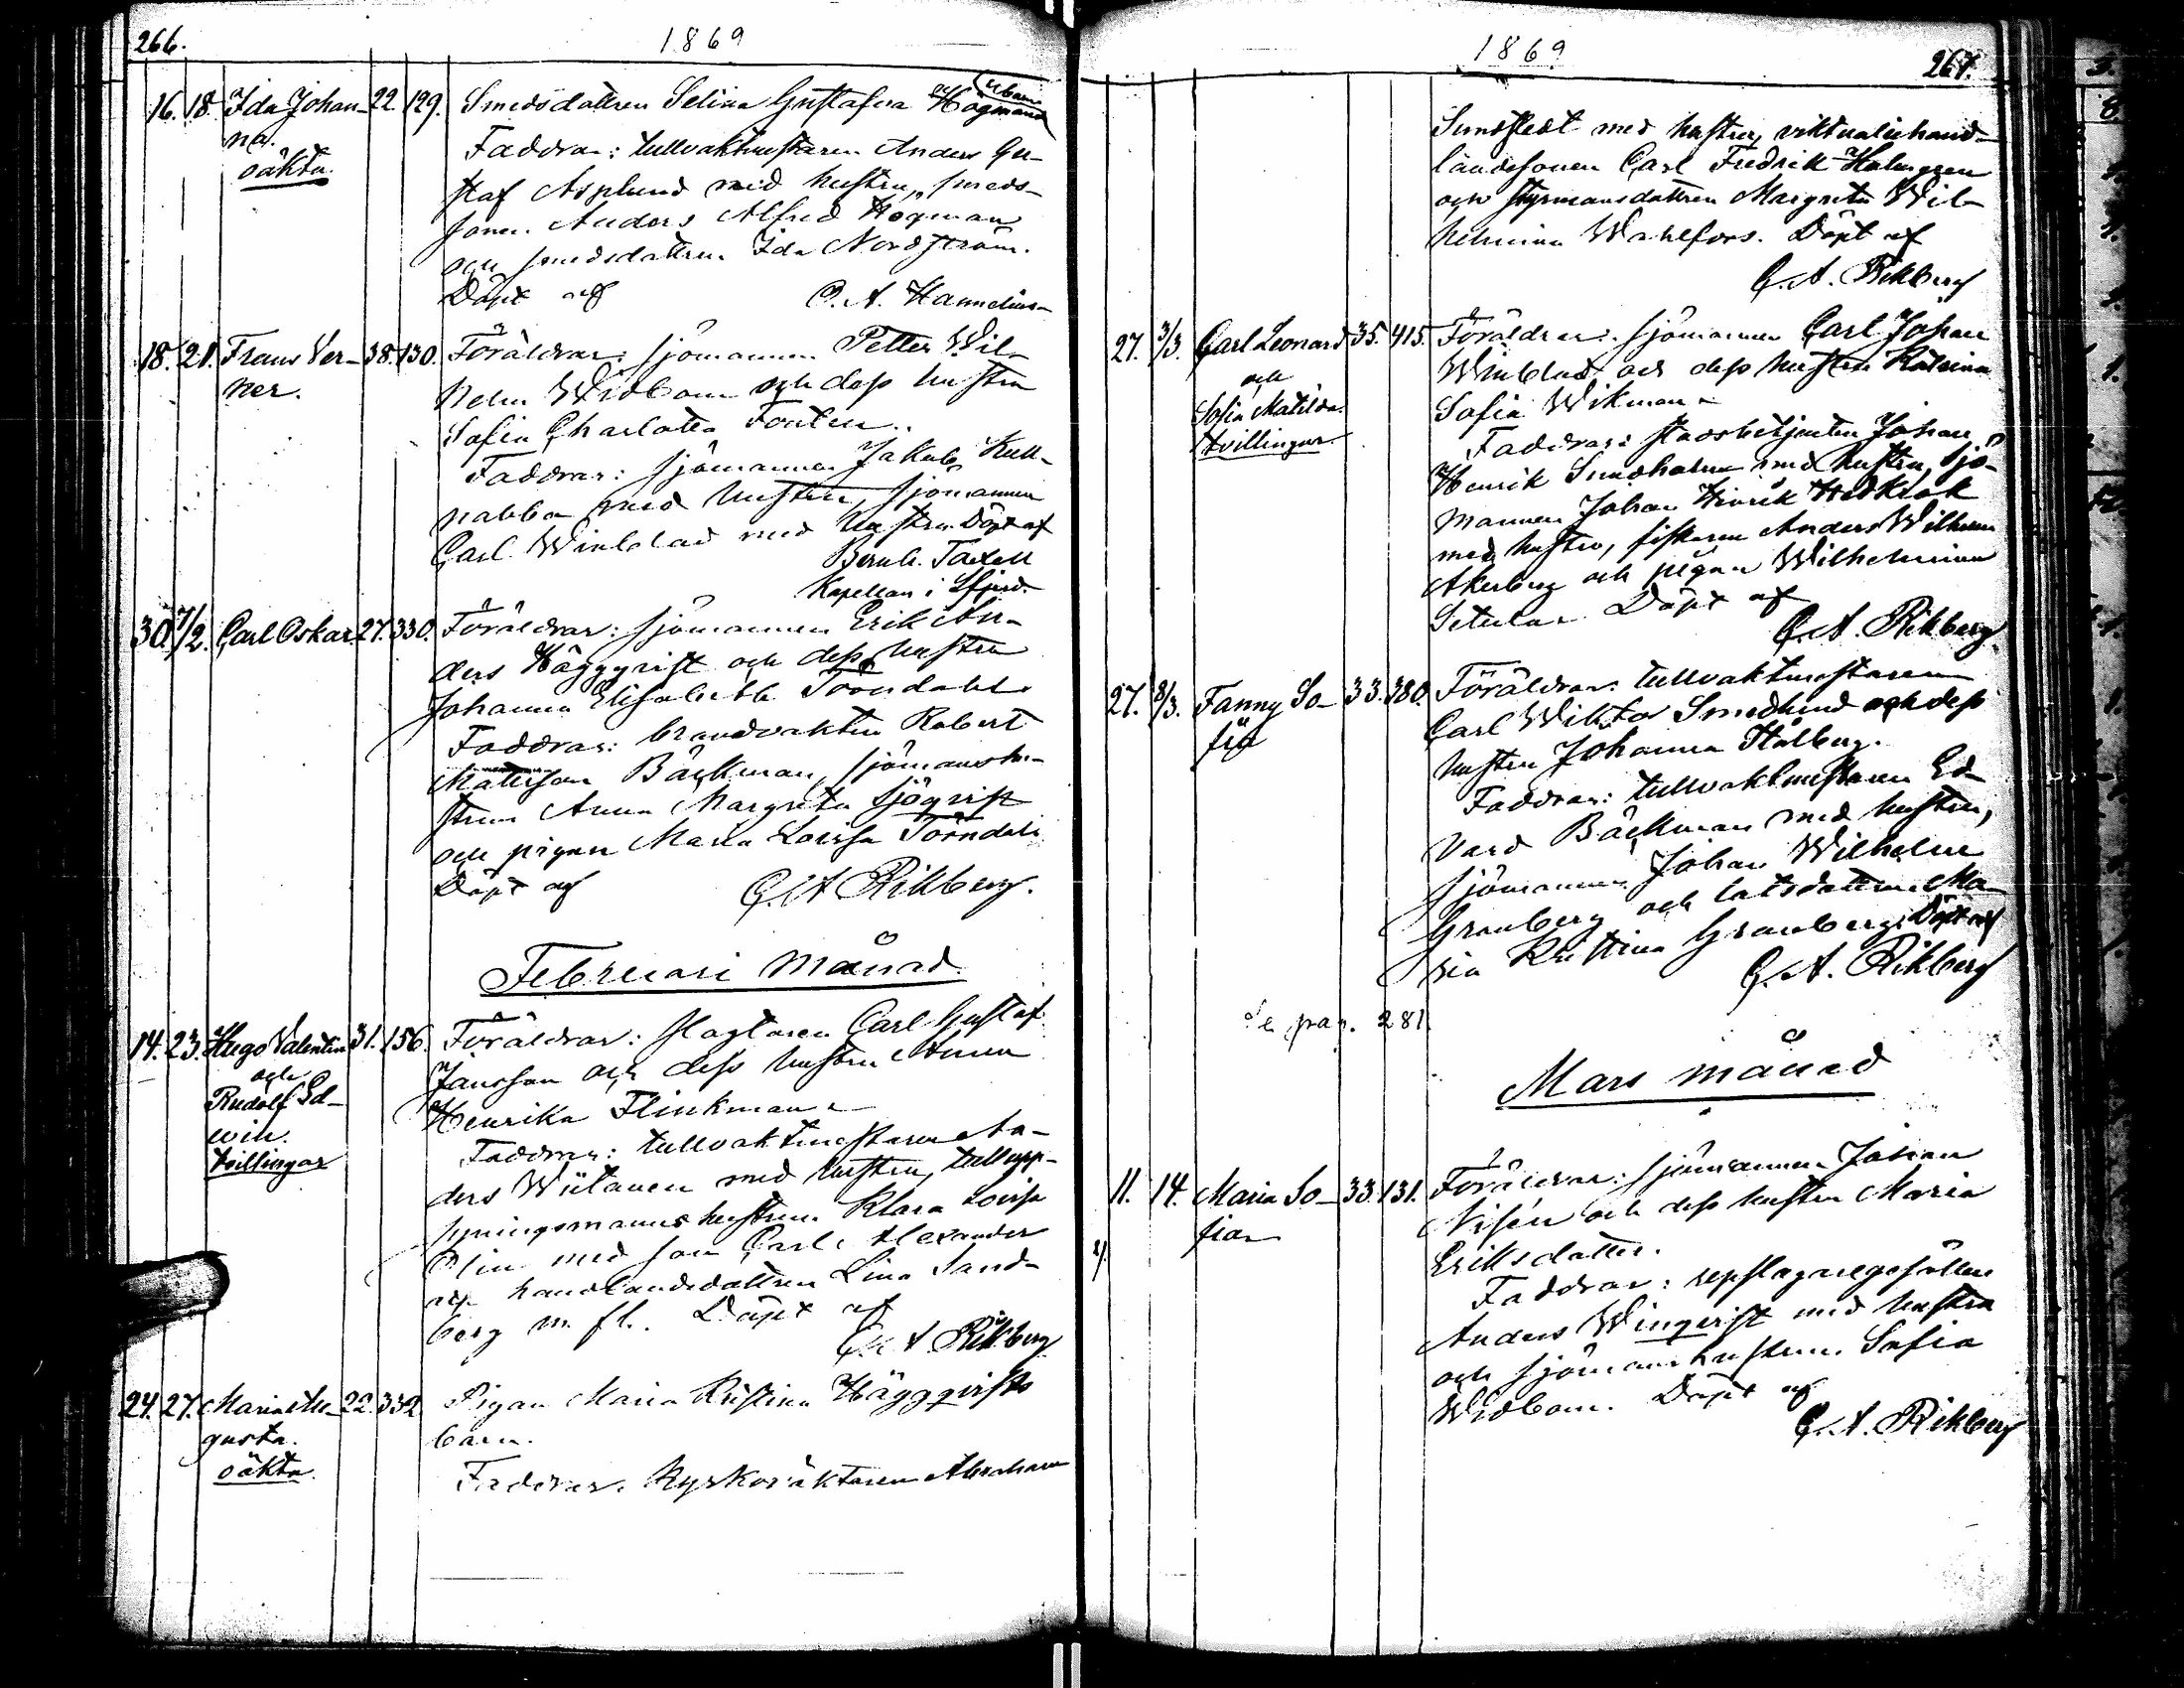 266.
1869
16. 18. Ida Johan- 22. 129. Smedsdottren Selina Gustafva Högmans
na.
oäkta.
Faddrar: tullvaktmästaren Anders Gu-
staf Asplund med hustru, smeds-
sonen Anders Alfred Högman
och smedsdottren Ida Nordström.
Döpt af
C. A. Hannelius
18. 21. Frans Ver- 38. 130. Föräldrar: sjömannen Petter Wil-
ner.
helm Widbom och dess hustru
Sofia Charlotta Fontin.
Faddrar: sjömannen Jakob Kull-
nabba med hustru, sjömannen
Carl Winblad med hustru. Döpt af
Bernh. Taxell
Kapellan i Sfjerd.
30. 7/2. Carl Oskar. 27. 330. Föräldrar: sjömannen Erik An-
ders Häggqvist och dess hustru
Johanna Elisabeth Törndahl
Faddrar: brandvakten Robert
Mattsson Bäckman, sjömanshu-
strun Anna Margreta Sjöqvist
och pigan Maria Lovisa Törndahl
Döpt af
G. A. Rikberg.
Februari månad.
14. 23. Hugo Valentin 31. 156. Föräldrar: slagtaren Carl Gustaf
och
Rudolf Ed-
win.
tvillingar
Jansson och dess hustru Anna
Henrika Flinkman
Faddrar: tullvaktmästaren An-
ders Wiitanen med hustru, tullupp-
syningsmannshustrun Klara Lovisa
Olin med son Carl Alexander
och handlandsdottren Lina Sand-
berg m. fl. Döpt af
G. A. Rikberg
24. 27. Maria Au- 22. 332. Pigan Maria Kristina Häggqvists
gusta.
oäkta.
barn.
Faddrar: Kyrkovaktaren Abraham
1869
267.
Sundstedt med hustru, viktualiehand-
landesonen Carl Fredrik Holmgren
och styrmansdottren Margreta Wil-
helmina Wahlfors. Döpt af
G. A. Rikberg
27. 3/3. Carl Leonard 35. 415. Föräldrar: sjömannen Carl Johan
och
Sofia Matilda.
tvillingar.
Winblad och dess hustru Katrina
Sofia Wikman
Faddrar: stadsbetjenten Johan
Henrik Sundholm med hustru, sjö-
mannen Johan Hinrik Hedkrok
med hustru, fiskaren Anders Wilhelm
Åkerberg och pigan Wilhelmina
Döpt af
G. A. Rikberg
27. 8/3. Fanny So- 33. 380. Föräldrar: tullvaktmästaren
fia
Carl Wiktor Smedlund och dess
hustru Johanna Stålberg.
Faddrar: tullvaktmästaren Ed-
vard Bäckman med hustru,
sjömannen Johan Wilhelm
Granberg och lotsdottren Ma-
ria Kristina Granberg. Döpt af
G. A. Rikberg
Se pag. 281.
Mars månad
11. 14. Maria So- 33. 131. Föräldrar: sjömannen Johan
fia
Nisén och dess hustru Maria
Eriksdotter.
Faddrar: repslagaregesällen
Anders Winqvist med hustru
och sjömanshustrun Sofia
Widbom. Döpt af
G. A. Rikberg